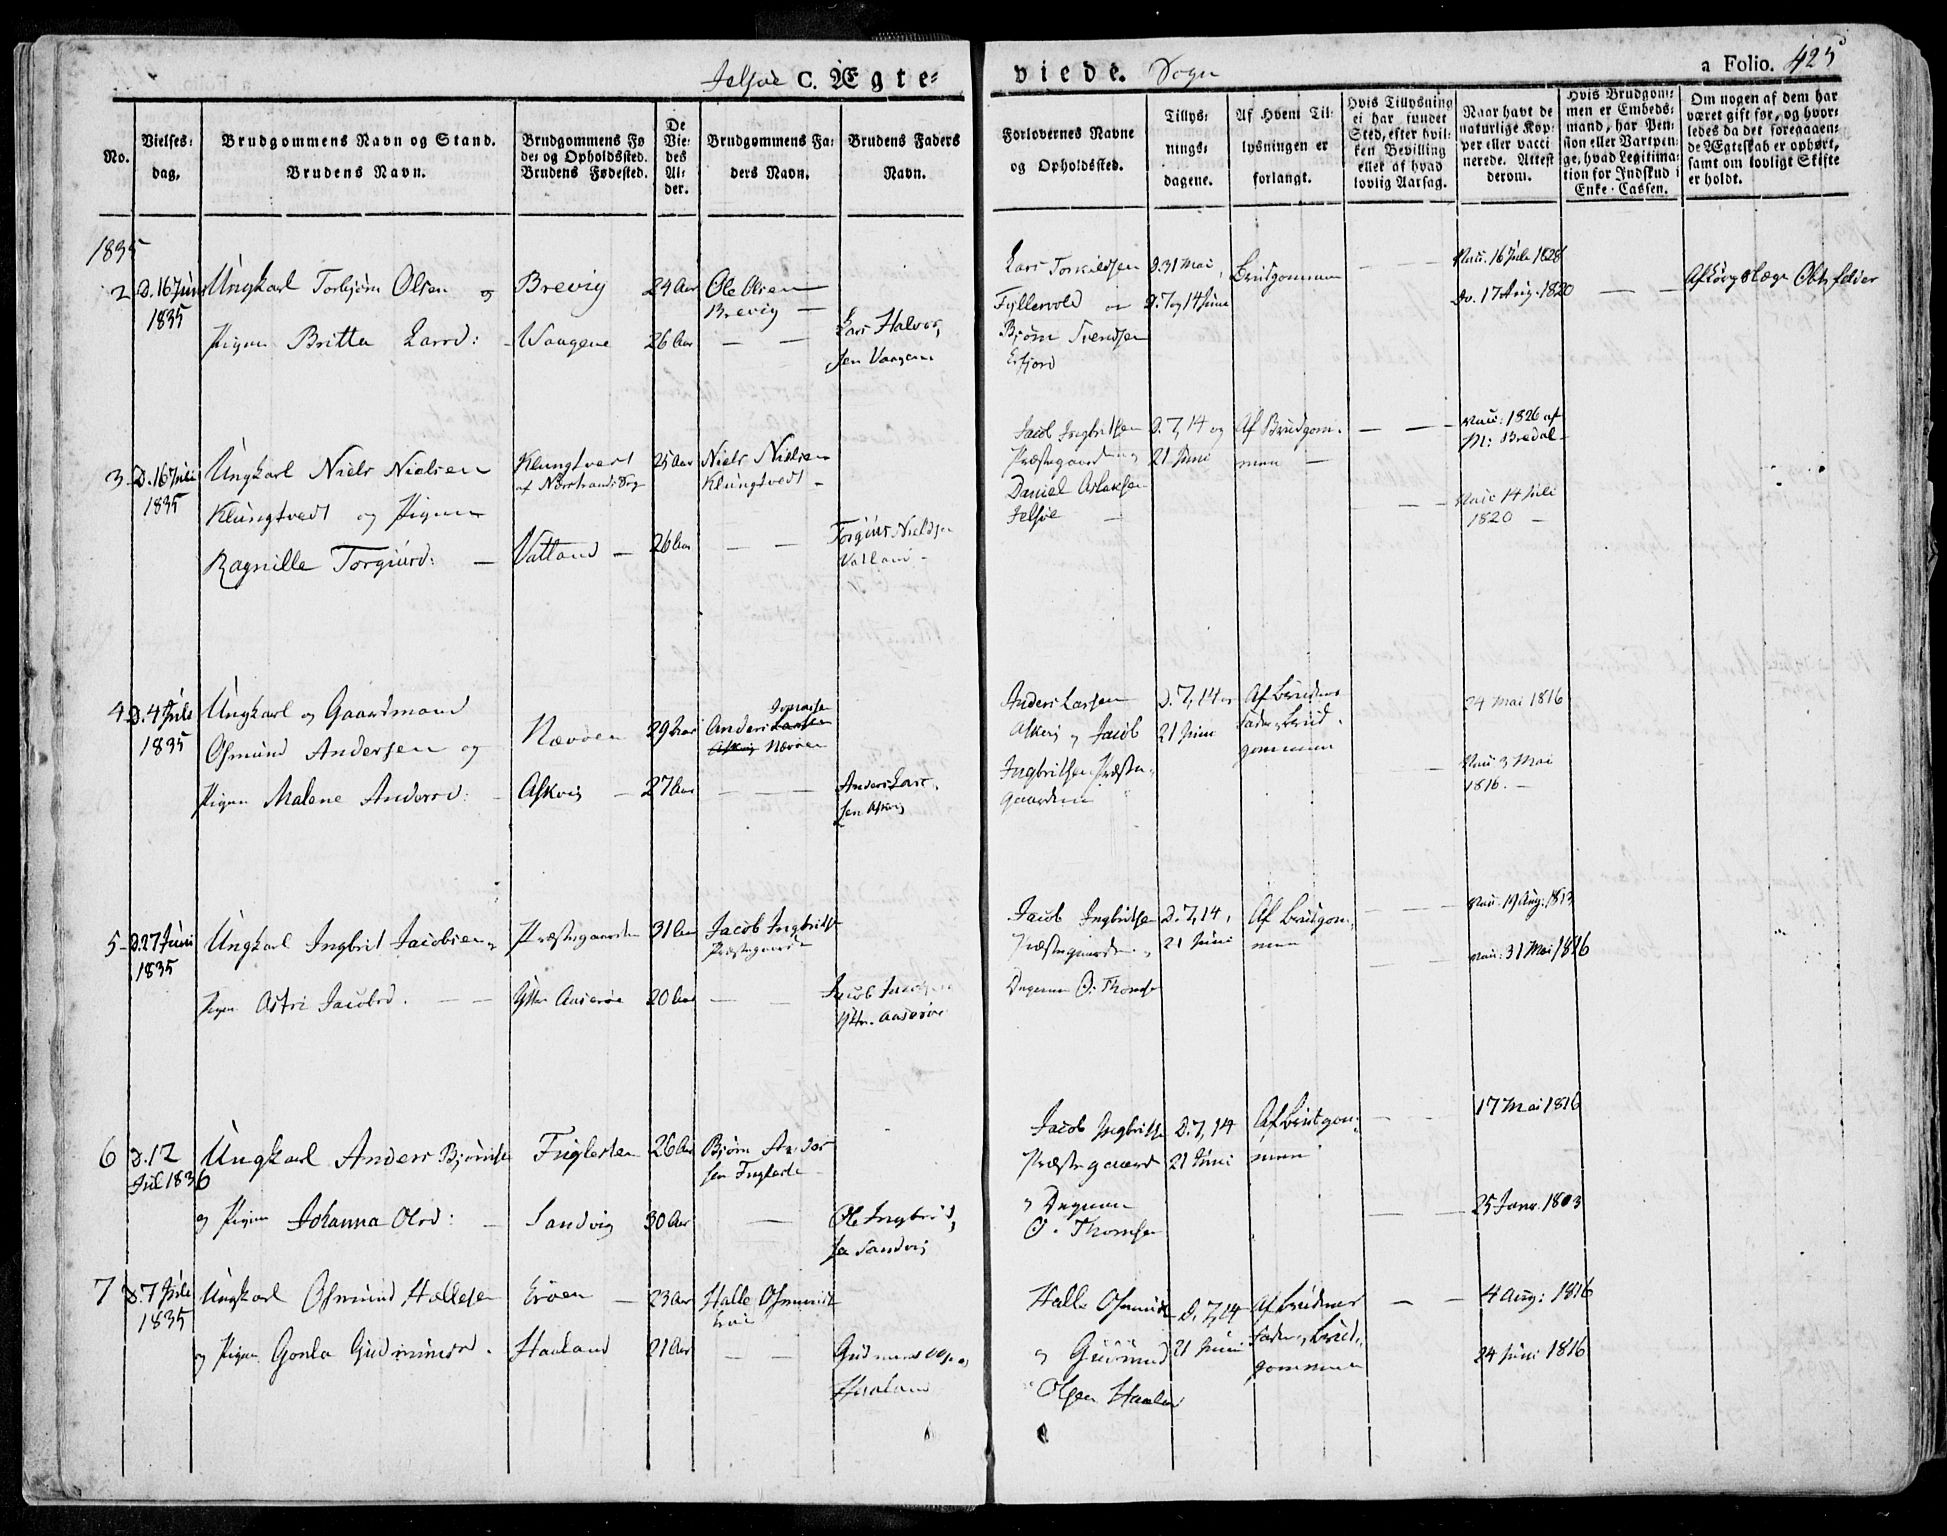 Jelsøe C. Ægte=
viede. Sogn
a Folio. 425
No.
Vielses=
dag.
Brudgommens Navn og Stand.
Brudens Navn.
Brudgommens Fø
de= og Opholdssted.
Brudens Fødested.
De
Vie=
des
Al=
der.
Brudgommens Fa=
ders Navn.
Brudens Faders
Navn.
Forlovernes Navne
og Opholdssted.
Tillys=
nings=
dagene.
Af Hvem Til=
lysningen er
forlangt.
Hvis Tillysning
ei har fundet
Sted, efter hvil=
ken Bevilling
eller af hvad
lovlig Aarsag.
Naar havt de
naturlige Kop=
per eller vacci
nerede. Attest
derom.
Hvis Brudgom=
men er Embeds=
mand, har Pen=
sion eller Vartpen=
ge, hvad Legitima=
tion for Indskud i
Enke=Cassen.
Om nogen af dem har
været gift før, og hvor=
ledes da det foregaaen=
de Ægteskab er ophørt,
samt om lovligt Skifte
er holdt.
1835
2 D. 16 Juni
1835
Ungkarl Torbjørn Olsen og
Pigen Britta Larsd:
Brevig
Waagene
24 Aar
26 Aar
Ole Olsen
Brevig
Lars Halvor,
sen Vaagene
Lars Torkildsen
Fyllesvold
Bjørn Svendsen
Erfjord
D. 31 Mai,
D. 7 og 14 Juni
Brudgommen
Vacc. 16 Jule 1828
Do. 17 Aug. 1820
3 D. 16 Juli
1835
Ungkarl Niels Nielsen
Klungtvedt og Pigen
Ragnille Torgiusd:
Klungtvedt
af Nærstrands Sog
Vatland
25 Aar
26 Aar
Niels Nielsen
Klungtvedt
Torgius Nieldsen
Vatland
Jacob Ingbritsen
Præstegaarden og
Daniel Aslaksen
Jelsøe
D. 7, 14 og
21 Juni
Af Brudgom,
men
Vacc: 1826 af
M: Bredal
Vacc 14 Juli
1820
4 D. 4 Jule
1835
Ungkarl og Gaardmand
Osmund Andersen og
Pigen Malene Andersd:
Nævøen
Askvig
29 Aar
27 Aar
Anders
Larsen
Askvig Nævøen
Anders Lar,
sen Askvig
Anders Larsen
Askvig og Jacob
Ingbritsen Præste,
gaarden
D. 7, 14 og
21 Juni
Af Brudens
Fader og Brud,
gommen
24 Mai 1816
Vacc 3 Mai
1816.
5 D. 27 Juni
1835
Ungkarl Ingbrit Jacobsen
Pigen Astri Jacobsd.
Præstegaarden
Yttre Aaserøe
31 Aar
20 Aar
Jacob Ingbritse
Præstegaarden
Jacob
Yttr. Aaserøe
Jacob Ingbritse
Præstegaarden
Degnen O. Thomse
D. 7, 14,
21 Juni
Af Brudgom,
men
Vacc. 19 Aug: 1813
Vacc: 31 Mai 1816
6 D. 12
Jul 1836
Ungkarl Anders Bjørnse
og Pigen Johanna Olsd:
Fuglesten
Sandvig
26 Aar
30 Aar
Bjørn Ander
sen Fugleste
Ole Ingbrid,
se Sandvig
Jacob Ingbritse
Præstegaard
og Degnen
O. Thomse
D. 7, 14
21 Juni
Af Brudgom,
men
17 Mai 1816
25 Janr. 1803
7 D. 7 Jule
1835
Ungkarl Osmund Hallesen
og Pigen Gonla Gudmunsd.
Erøen
Haaland
23 Aar
21 Aar
Halle Osmunds
Erøe
Gudmund Olse
Haaland
Halle Osmund
og Gudmund
Olsen Haalan
D. 7, 14
21 Juni
Af Brudens
Fader og Brud,
gommen
4 Aug: 1816
24 Juni 1816